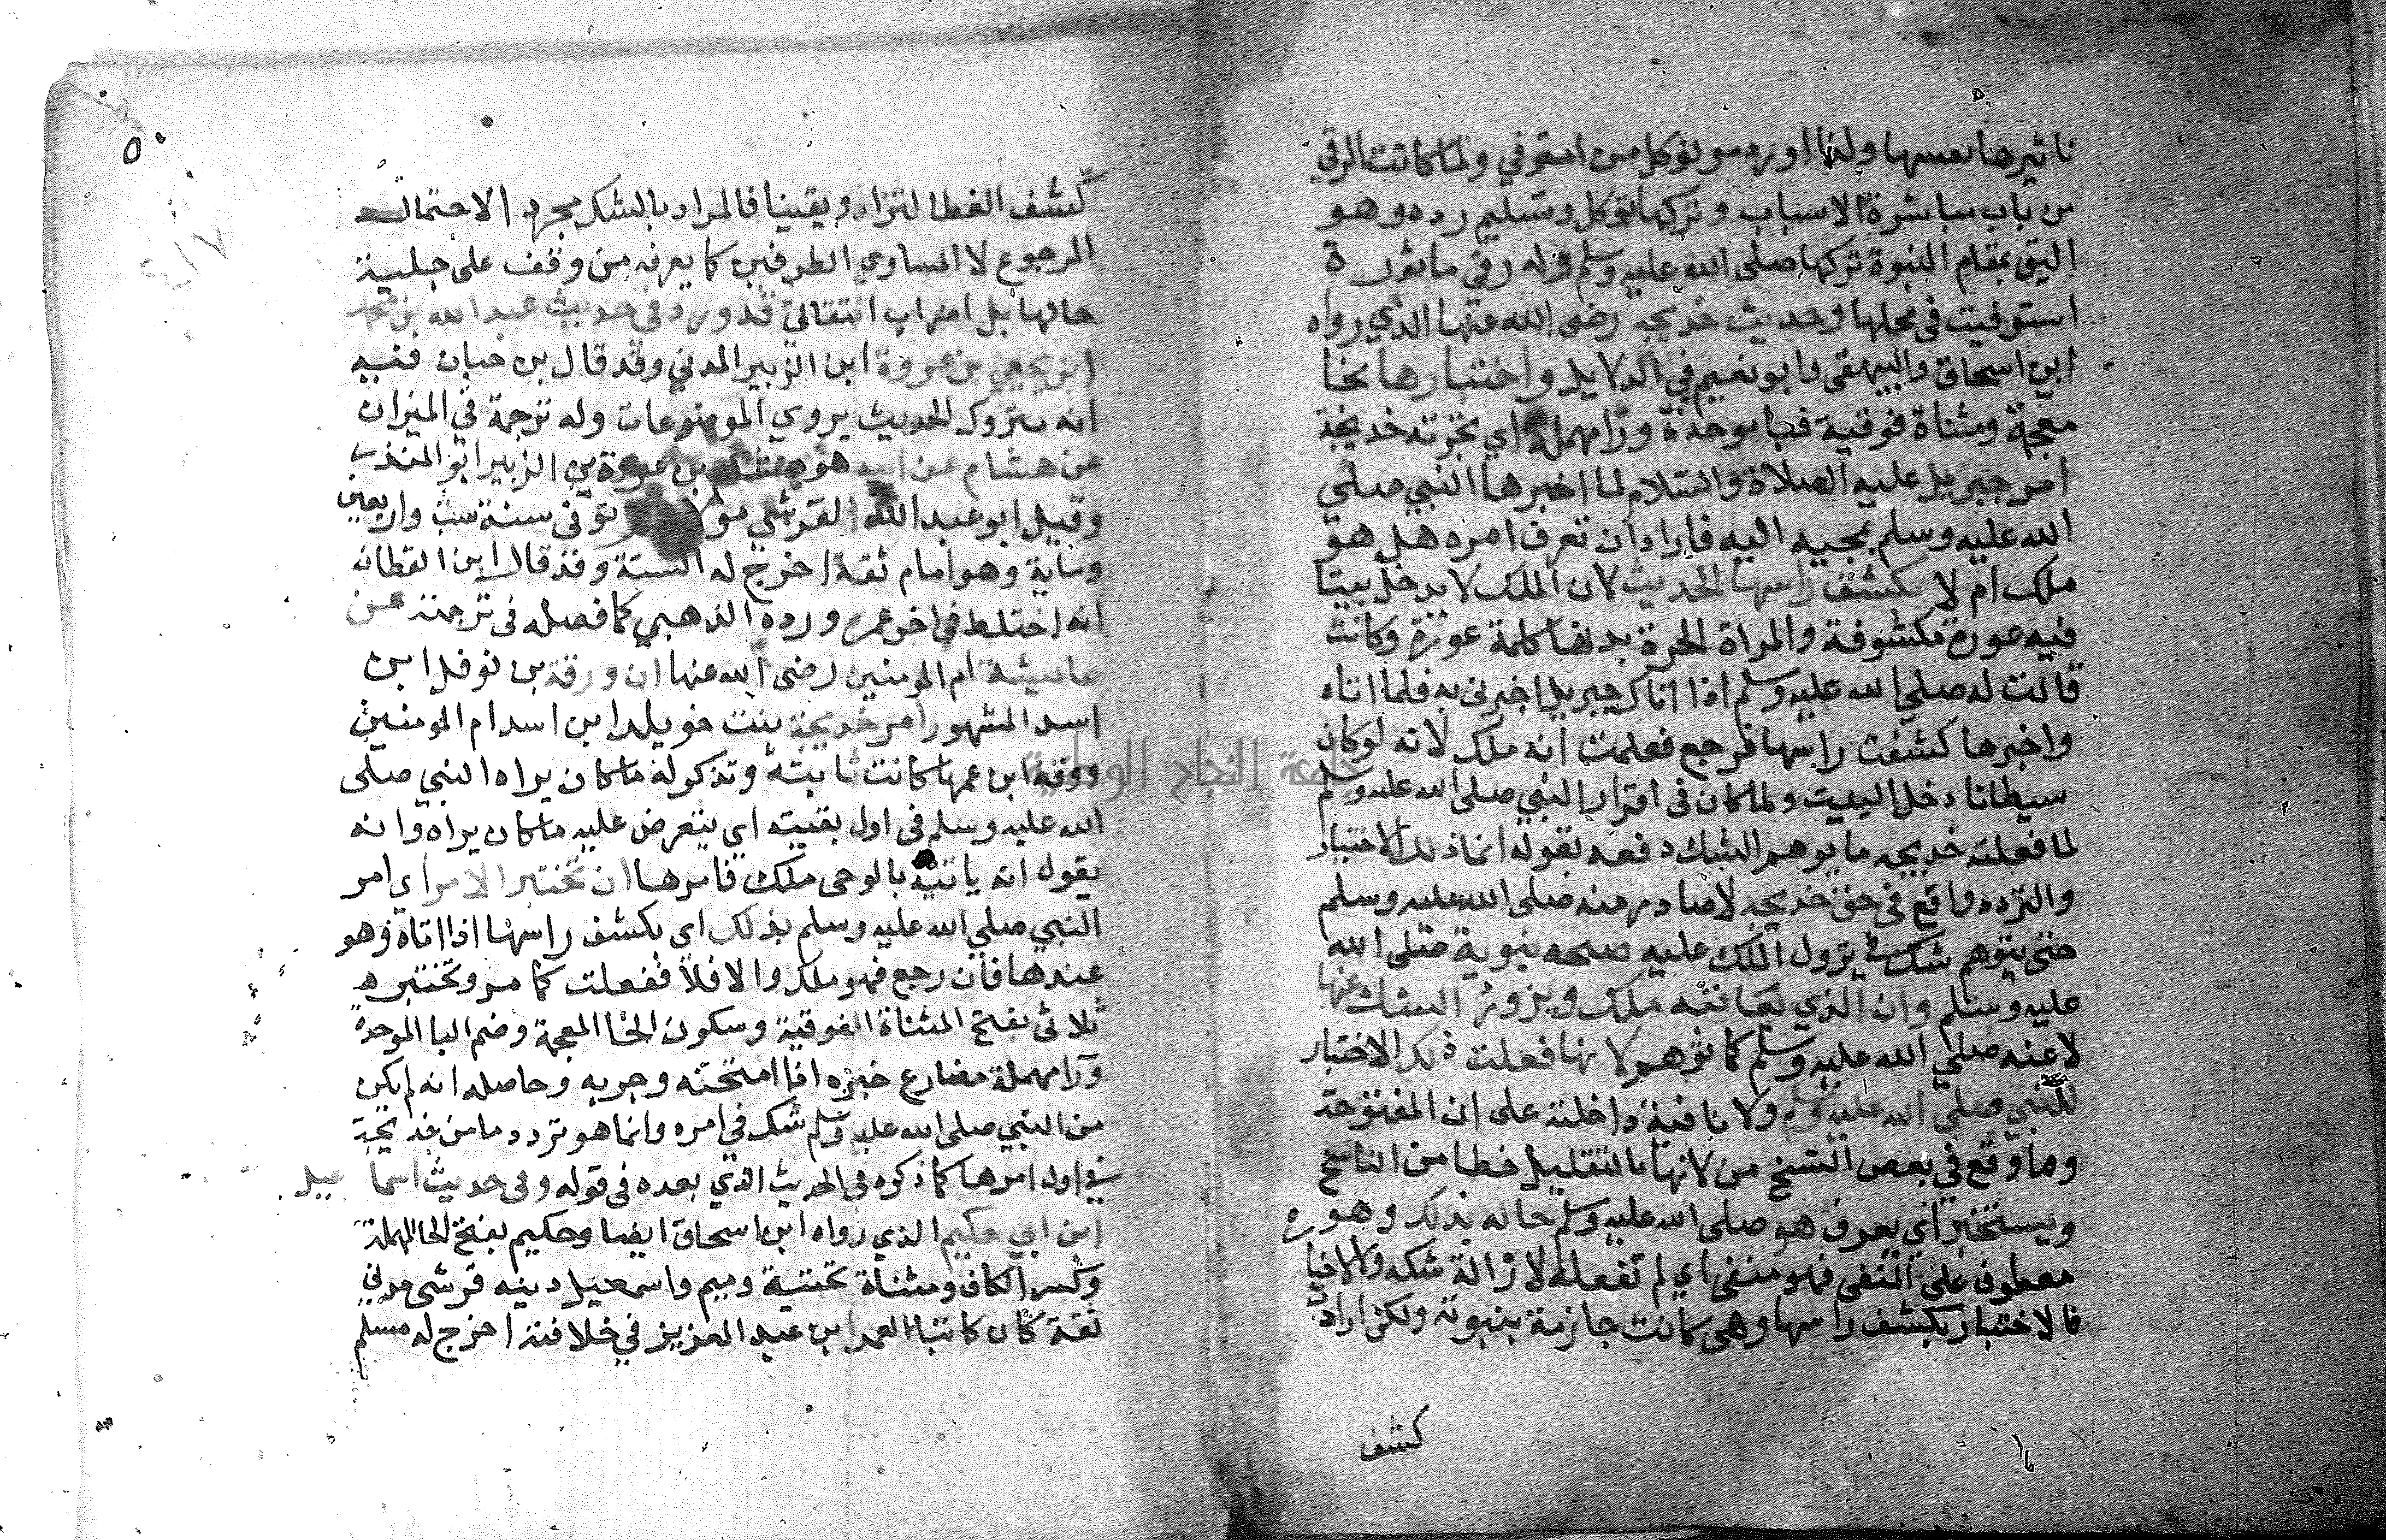 تاثيرها بنفسها ولذا ورد مو توكل من استرقي ولما كانت الرقي
من باب مباشرة الاسباب وتركها توكل وتسليم رده وهو
اليق بمقام النبوة تركها صلى الله عليه وسلم وله رقي ماثورة
استوفيت في محلها وحديث خديجه رضى الله عنها الذي رواه
ابن اسحاق والبيهقى وابو نعيم في الدلايل واختبارها بخا
معجمة ومثناة فوقية فبا موحدة ورا مهملة اي تجربته خديجة
امر جبريل عليه الصلاة والسلام لما اخبرها النبي صلى
الله عليه وسلم بمجيه اليه فاراد ان تعرف امره هل هو
ملك ام لا بكشف راسها الحديث لان الملك لا يدخل بيتا
فيه عورة مكشوفة والمراة الحرة بدنها كلمة عورة وكانت
قالت له صلي الله عليه وسلم اذا اتاك جبريل اخبرني به فلما اتاه
واخبرها كشفت راسها فرجع فعلمت انه ملك لانه لوكان
سيطانا دخل البيت ولما كان في اقرار النبي صلى الله عليه وسلم
لما فعلته خديجه ما يوهم الشك دفعه بقوله انما ذلك الاختبار
والتردد واقع في حق خديجه لا صادر منه صلى الله عليه وسلم
حتى يتوهم شك في نزول الملك عليه صحه نبوية صلى الله
عليه وسلم وان الذي ملك ويزول الشك عنها
لا عنه صلي الله عليه وسلم كما توهم لا نها فعلت ذلك الاختبار
للنبي صلي الله عليه وسلم ولا نافية داخلة على ان المفتوحة
وما وقع في بعض النسخ من لانها بالتقليل خطا من الناسخ
ويستخبر اي يعرف هو صلى الله عليه وسلم حاله بذلك وهو
معطوف على النفى فهو منفى اي لم تفعله لازالة شكه ولا لاختبا
فالاختبار بكشف راسها وهى كانت جازمة بنبوته ولكن ارادت
كشف
٥
كشف الغطا لتزاد ويقينا فالمراد بالشك مجرد الاحتمال
المرجوع لا المساوي الطرفين كما يعرفه من وقف على جلية
حالها بل اضراب انتقالي قد ورد في حديث عبد الله بن محمد
ابن يحيي بن عروة ابن الزبير المدني وقد قال بن حبان فيه
انه متروك الحديث يروي الموضوعات وله ترجمة في الميزان
عن هشام عن ابيه هو هشام بن عروة بن الزبير ابو المنذر
وقيل ابو عبد الله القرشي توفى سنة ست واربعين
وماية وهو امام ثقة اخرج له الستة وقد قال ابن القطان
انه اختلط في اخر عمره ورده الذهبي كما فصله في ترجمته عن
عايشة ام المومنين رضى الله عنها ان ورقة بن نوفل ابن
اسد المشهور امر خديجة بنت خويلد ابن اسد ام المومنين
وورقة ابن عمها كانت تاتيه وتذكر له ما كان يراه النبي صلى
الله عليه وسلم في اول بعثته اي يتعرض عليه ما كان يراه وانه
يقول انه ياتيه بالوحى ملك فامرها ان تختبر الامر اي امر
النبي صلي الله عليه وسلم بذلك اي بكشف راسها اذا اتاه وهو
عندها فان رجع فهو ملك والا فلا ففعلت كما مر وتختبر ه
ثلاثى بفتح المثناة الفوقية وسكون الخا المعجمة وضم البا الموحدة
ورا مهملة مضارع خبره اذا امتحنه وجربه وحاصله انه لم يكن
من النبي صلى الله عليه وسلم شك في امره وانما هو تردد ما من خديجة
في اول امرها كما ذكره في الحديث الذي بعده في قوله وفى حديث اسما عيل
ابن ابي حكيم الذي رواه ابن اسحاق ايضا وحكيم بفتح الحا المهملة
وكسر الكاف ومثناة تحتية وميم واسمعيل دينه قرشى مدني
ثقة كان كاتبا لعمر ابن عبد العزيز في خلافته اخرج له مسلم
جامعة النجاح الوطنية